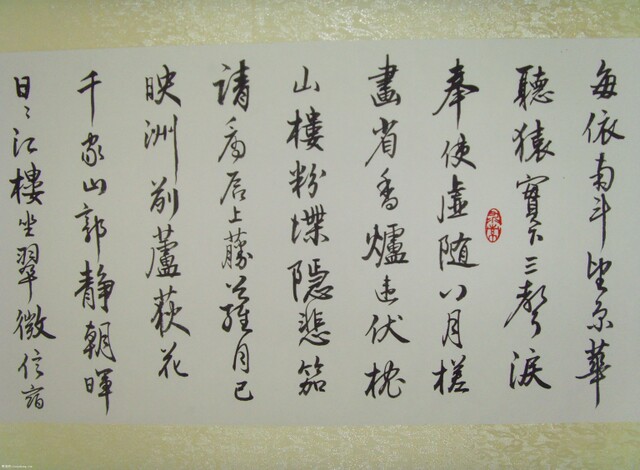 每依南斗望京華
聽猿實下三聲淚
奉使虛隨八月槎
畫省香爐違伏枕
山樓粉堞隱悲笳
請看石上藤蘿月已
映洲前蘆荻花
千家山郭靜朝暉
日〻江樓坐翠微信宿